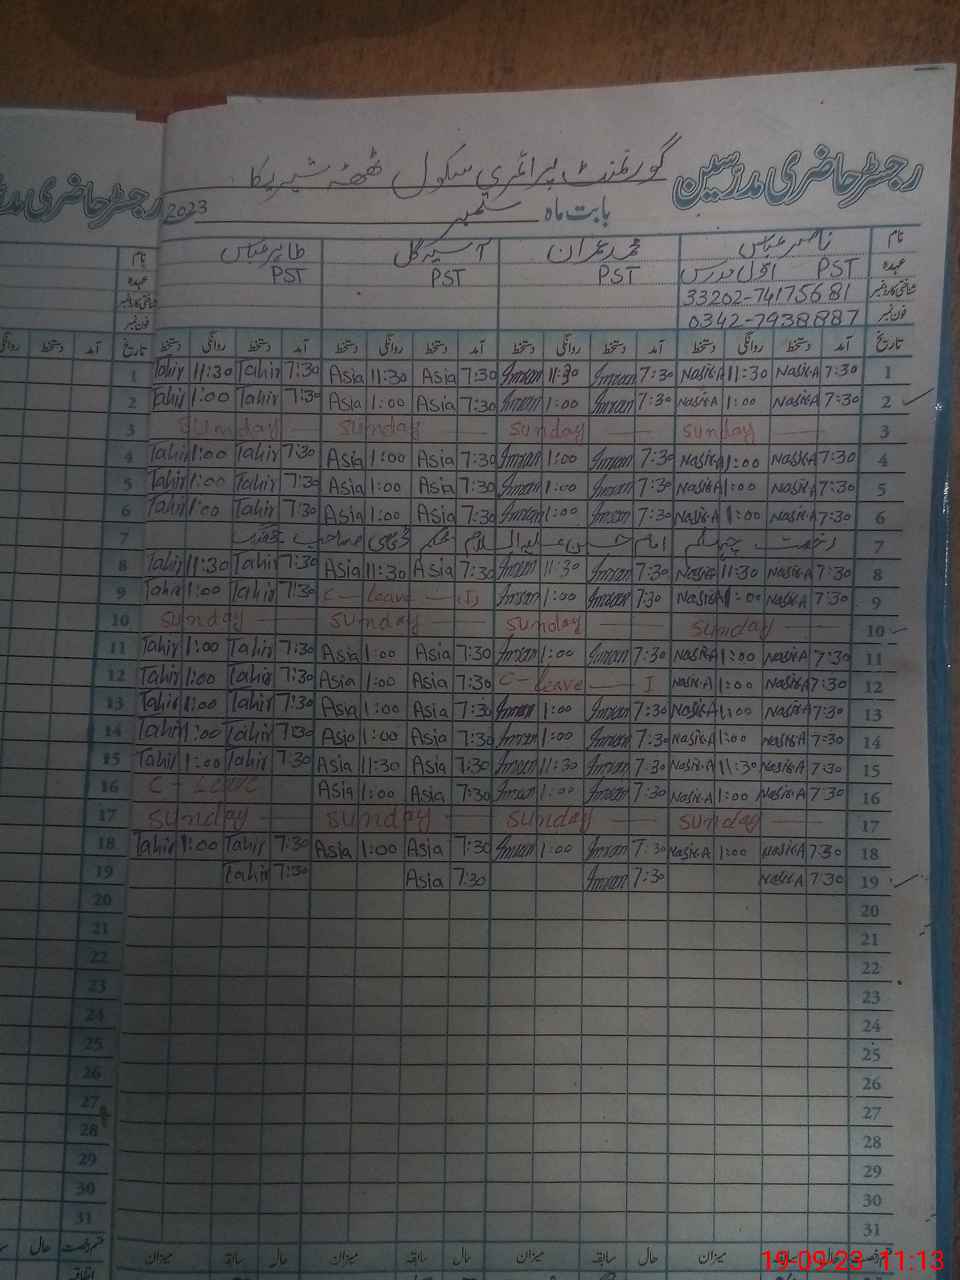 رجسٹر حاضری مدرسین گورنمنٹ پرائمری سکول ٹھٹھہ
بابت ماہ ستمبر 2023
نام ناصر عباس محمد عمران آسیہ گل طاہر عباس
عہدہ PST اول مدرس PST PST PST
شناختی کارڈ نمبر 33202-7417568 1
فون نمبر 0342-7938887
تاریخ آمد دستخط روانگی دستخط آمد دستخط روانگی دستخط آمد دستخط روانگی دستخط آمد دستخط روانگی دستخط تاریخ
1 7:30 Nasir.A 11:30 Nasir.A 7:30 Imran 11:30 Imran 7:30 Asia 11:30 Asia 7:30 Tahir 11:30 Tahir 1
2 7:30 Nasir.A 1:00 Nasir.A 7:30 Imran 1:00 Imran 7:30 Asia 1:00 Asia 7:30 Tahir 1:00 Tahir 2
3 Sunday Sunday Sunday Sunday 3
4 7:30 Nasir.A 1:00 Nasir.A 7:30 Imran 1:00 Imran 7:30 Asia 1:00 Asia 7:30 Tahir 1:00 Tahir 4
5 7:30 Nasir.A 1:00 Nasir.A 7:30 Imran 1:00 Imran 7:30 Asia 1:00 Asia 7:30 Tahir 1:00 Tahir 5
6 7:30 Nasir.A 1:00 Nasir.A 7:30 Imran 1:00 Imran 7:30 Asia 1:00 Asia 7:30 Tahir 1:00 Tahir 6
7 رخصت چہلم امام حسین علیہ السلام بحکم ڈی سی صاحب 7
8 7:30 Nasir.A 11:30 Nasir.A 7:30 Imran 11:30 Imran 7:30 Asia 11:30 Asia 7:30 Tahir 11:30 Tahir 8
9 7:30 Nasir.A 1:00 Nasir.A 7:30 Imran 1:00 Imran C - Leave 7:30 Tahir 1:00 Tahir 9
10 Sunday Sunday Sunday Sunday 10
11 7:30 Nasir.A 1:00 Nasir.A 7:30 Imran 1:00 Imran 7:30 Asia 1:00 Asia 7:30 Tahir 1:00 Tahir 11
12 7:30 Nasir.A 1:00 Nasir.A C - Leave I 7:30 Asia 1:00 Asia 7:30 Tahir 1:00 Tahir 12
13 7:30 Nasir.A 1:00 Nasir.A 7:30 Imran 1:00 Imran 7:30 Asia 1:00 Asia 7:30 Tahir 1:00 Tahir 13
14 7:30 Nasir.A 1:00 Nasir.A 7:30 Imran 1:00 Imran 7:30 Asia 1:00 Asia 7:30 Tahir 1:00 Tahir 14
15 7:30 Nasir.A 11:30 Nasir.A 7:30 Imran 11:30 Imran 7:30 Asia 11:30 Asia 7:30 Tahir 1:00 Tahir 15
16 7:30 Nasir.A 1:00 Nasir.A 7:30 Imran 1:00 Imran 7:30 Asia 1:00 Asia C - Leave 16
17 Sunday Sunday Sunday Sunday 17
18 7:30 Nasir.A 1:00 Nasir.A 7:30 Imran 1:00 Imran 7:30 Asia 1:00 Asia 7:30 Tahir 1:00 Tahir 18
19 7:30 Nasir.A 7:30 Imran 7:30 Asia 7:30 Tahir 19
20 20
21 21
22 22
23 23
24 24
25 25
26 26
27 27
28 28
29 29
30 30
31 31
حال سابقہ میزان حال سابقہ میزان حال سابقہ میزان حال سابقہ میزان
19-09-23 11:13